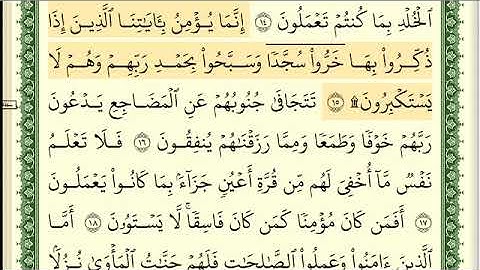 ٱلْخُلْدِ بِمَا كُنتُمْ تَعْمَلُونَ ١٤ إِنَّمَا يُؤْمِنُ بِـَٔايَـٰتِنَا ٱلَّذِينَ إِذَا
ذُكِّرُوا۟ بِهَا خَرُّوا۟ سُجَّدًا وَسَبَّحُوا۟ بِحَمْدِ رَبِّهِمْ وَهُمْ لَا
يَسْتَكْبِرُونَ ۩ ١٥ تَتَجَافَىٰ جُنُوبُهُمْ عَنِ ٱلْمَضَاجِعِ يَدْعُونَ
رَبَّهُمْ خَوْفًا وَطَمَعًا وَمِمَّا رَزَقْنَـٰهُمْ يُنفِقُونَ ١٦ فَلَا تَعْلَمُ
نَفْسٌ مَّآ أُخْفِىَ لَهُم مِّن قُرَّةِ أَعْيُنٍ جَزَآءًۢ بِمَا كَانُوا۟ يَعْمَلُونَ
١٧ أَفَمَن كَانَ مُؤْمِنًا كَمَن كَانَ فَاسِقًا ۚ لَّا يَسْتَوُۥنَ ١٨ أَمَّا
ٱلَّذِينَ ءَامَنُوا۟ وَعَمِلُوا۟ ٱلصَّـٰلِحَـٰتِ فَلَهُمْ جَنَّـٰتُ ٱلْمَأْوَىٰ نُزُلًۢا